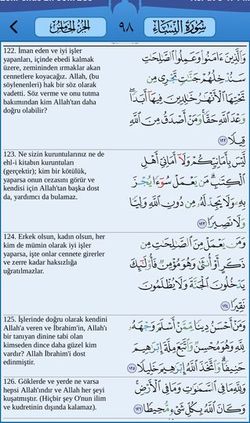 الجزء الخامس
٩٨
سورة النساء
122. İman eden ve iyi işler
yapanları, içinde ebedi kalmak
üzere, zemininden ırmaklar akan
cennetlere koyacağız. Allah, (bu
söylenenleri) hak bir söz olarak
vadetti. Söz verme ve onu tutma
bakımından kim Allah'tan daha
doğru olabilir?
وَالَّذِينَ آمَنُوا وَعَمِلُوا الصَّالِحَاتِ
سَنُدْخِلُهُمْ جَنَّاتٍ تَجْرِي مِن
تَحْتِهَا الْأَنْهَارُ خَالِدِينَ فِيهَا أَبَدًا
وَعْدَ اللَّهِ حَقًّا وَمَنْ أَصْدَقُ مِنَ اللَّهِ
قِيلًا ١٢٢
123. Ne sizin kuruntularınız ne de
ehl-i kitabın kuruntuları
(gerçektir); kim bir kötülük,
yaparsa onun cezasını görür ve
kendisi için Allah'tan başka dost
da, yardımcı da bulamaz.
لَّيْسَ بِأَمَانِيِّكُمْ وَلَا أَمَانِيِّ أَهْلِ
الْكِتَابِ مَن يَعْمَلْ سُوءًا يُجْزَ
بِهِ وَلَا يَجِدْ لَهُ مِن دُونِ اللَّهِ وَلِيًّا
وَلَا نَصِيرًا ١٢٣
124. Erkek olsun, kadın olsun, her
kim de mümin olarak iyi işler
yaparsa, işte onlar cennete girerler
ve zerre kadar haksızlığa
uğratılmazlar.
وَمَن يَعْمَلْ مِنَ الصَّالِحَاتِ مِن
ذَكَرٍ أَوْ أُنثَى وَهُوَ مُؤْمِنٌ فَأُولَئِكَ
يَدْخُلُونَ الْجَنَّةَ وَلَا يُظْلَمُونَ
نَقِيرًا ١٢٤
125. İşlerinde doğru olarak kendini
Allah'a veren ve İbrahim'in, Allah'ı
bir tanıyan dinine tabi olan
kimseden dince daha güzel kim
vardır? Allah İbrahim'i dost
edinmiştir.
وَمَنْ أَحْسَنُ دِينًا مِّمَّنْ أَسْلَمَ وَجْهَهُ
لِلَّهِ وَهُوَ مُحْسِنٌ وَاتَّبَعَ مِلَّةَ إِبْرَاهِيمَ
حَنِيفًا وَاتَّخَذَ اللَّهُ إِبْرَاهِيمَ خَلِيلًا ١٢٥
126. Göklerde ve yerde ne varsa
hepsi Allah'ındır ve Allah her şeyi
kuşatmıştır. (Hiçbir şey O'nun ilim
ve kudretinin dışında kalamaz).
وَلِلَّهِ مَا فِي السَّمَاوَاتِ وَمَا فِي الْأَرْضِ
وَكَانَ اللَّهُ بِكُلِّ شَيْءٍ مُّحِيطًا ١٢٦